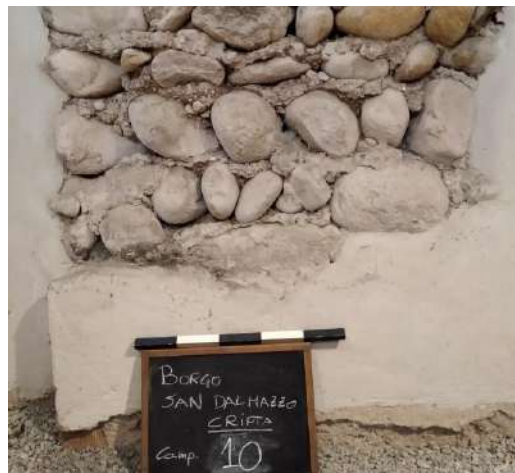 BORGO
SAN DALMAZZO
CRIPTA
Camp. 10